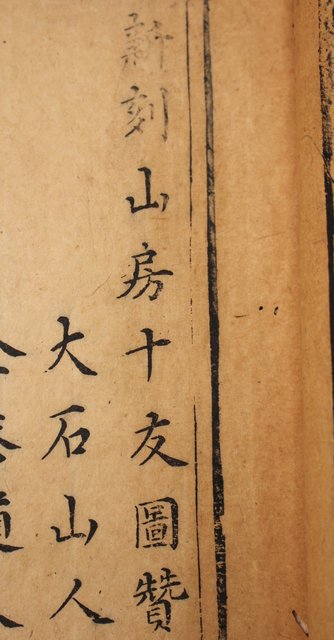 新刻山房十友圖贊
大石山人